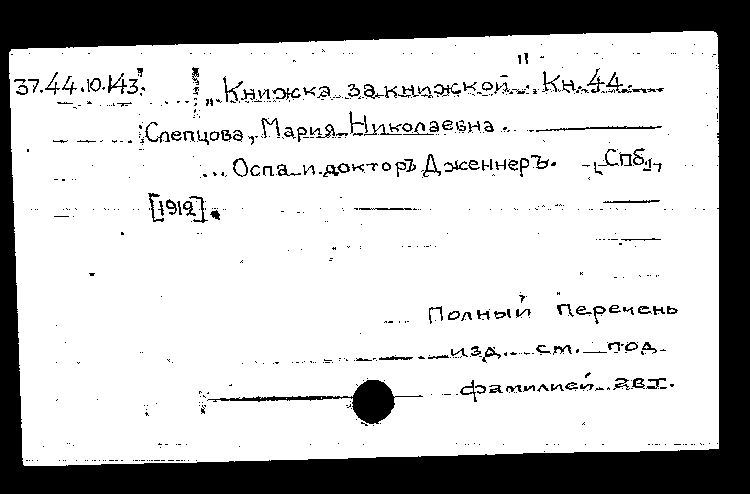 37.44.10.143. „Книжка за книжкой". Кн. 44.
Слепцова, Мария Николаевна.
... Оспа и докторъ Дженнеръ. - Спб.,
[1912].
Полный перечень
изд. см. под
фамилией авт.